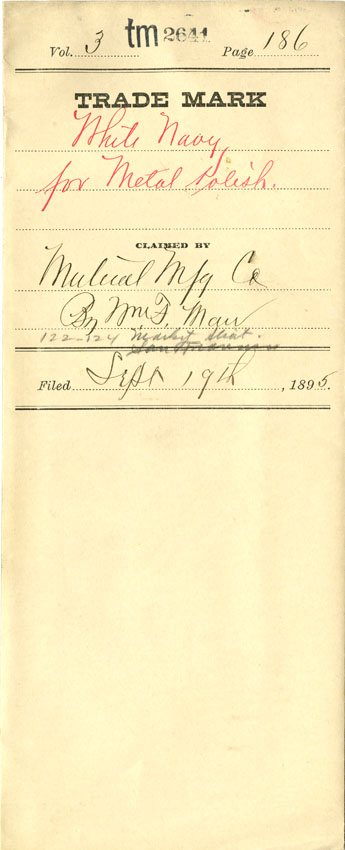 Vol. 3 tm 2641 Page 186
TRADE MARK
White Navy,
for Metal Polish.
CLAIMED BY
Mutual Mfg Co
By Wm F. Mau
122-124 Market Street
San Francisco
Filed Sept 19th, 1895.